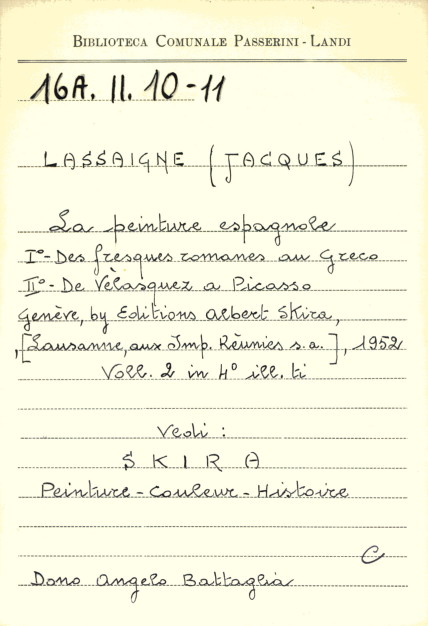 BIBLIOTECA COMUNALE PASSERINI - LANDI
16A. II. 10-11
LASSAIGNE (JACQUES)
La peinture espagnole
I°- Des fresques romanes au Greco
II°- De Vèlasquez a Picasso
Genève, by Editions Albert Skira,
,[Lausanne, aux Imp. Rèunies s.a.], 1952
Voll. 2 in 4° ill. ti
Vedi :
SKIRA
Peinture - Couleur - Histoire
C
Dono Angelo Battaglia